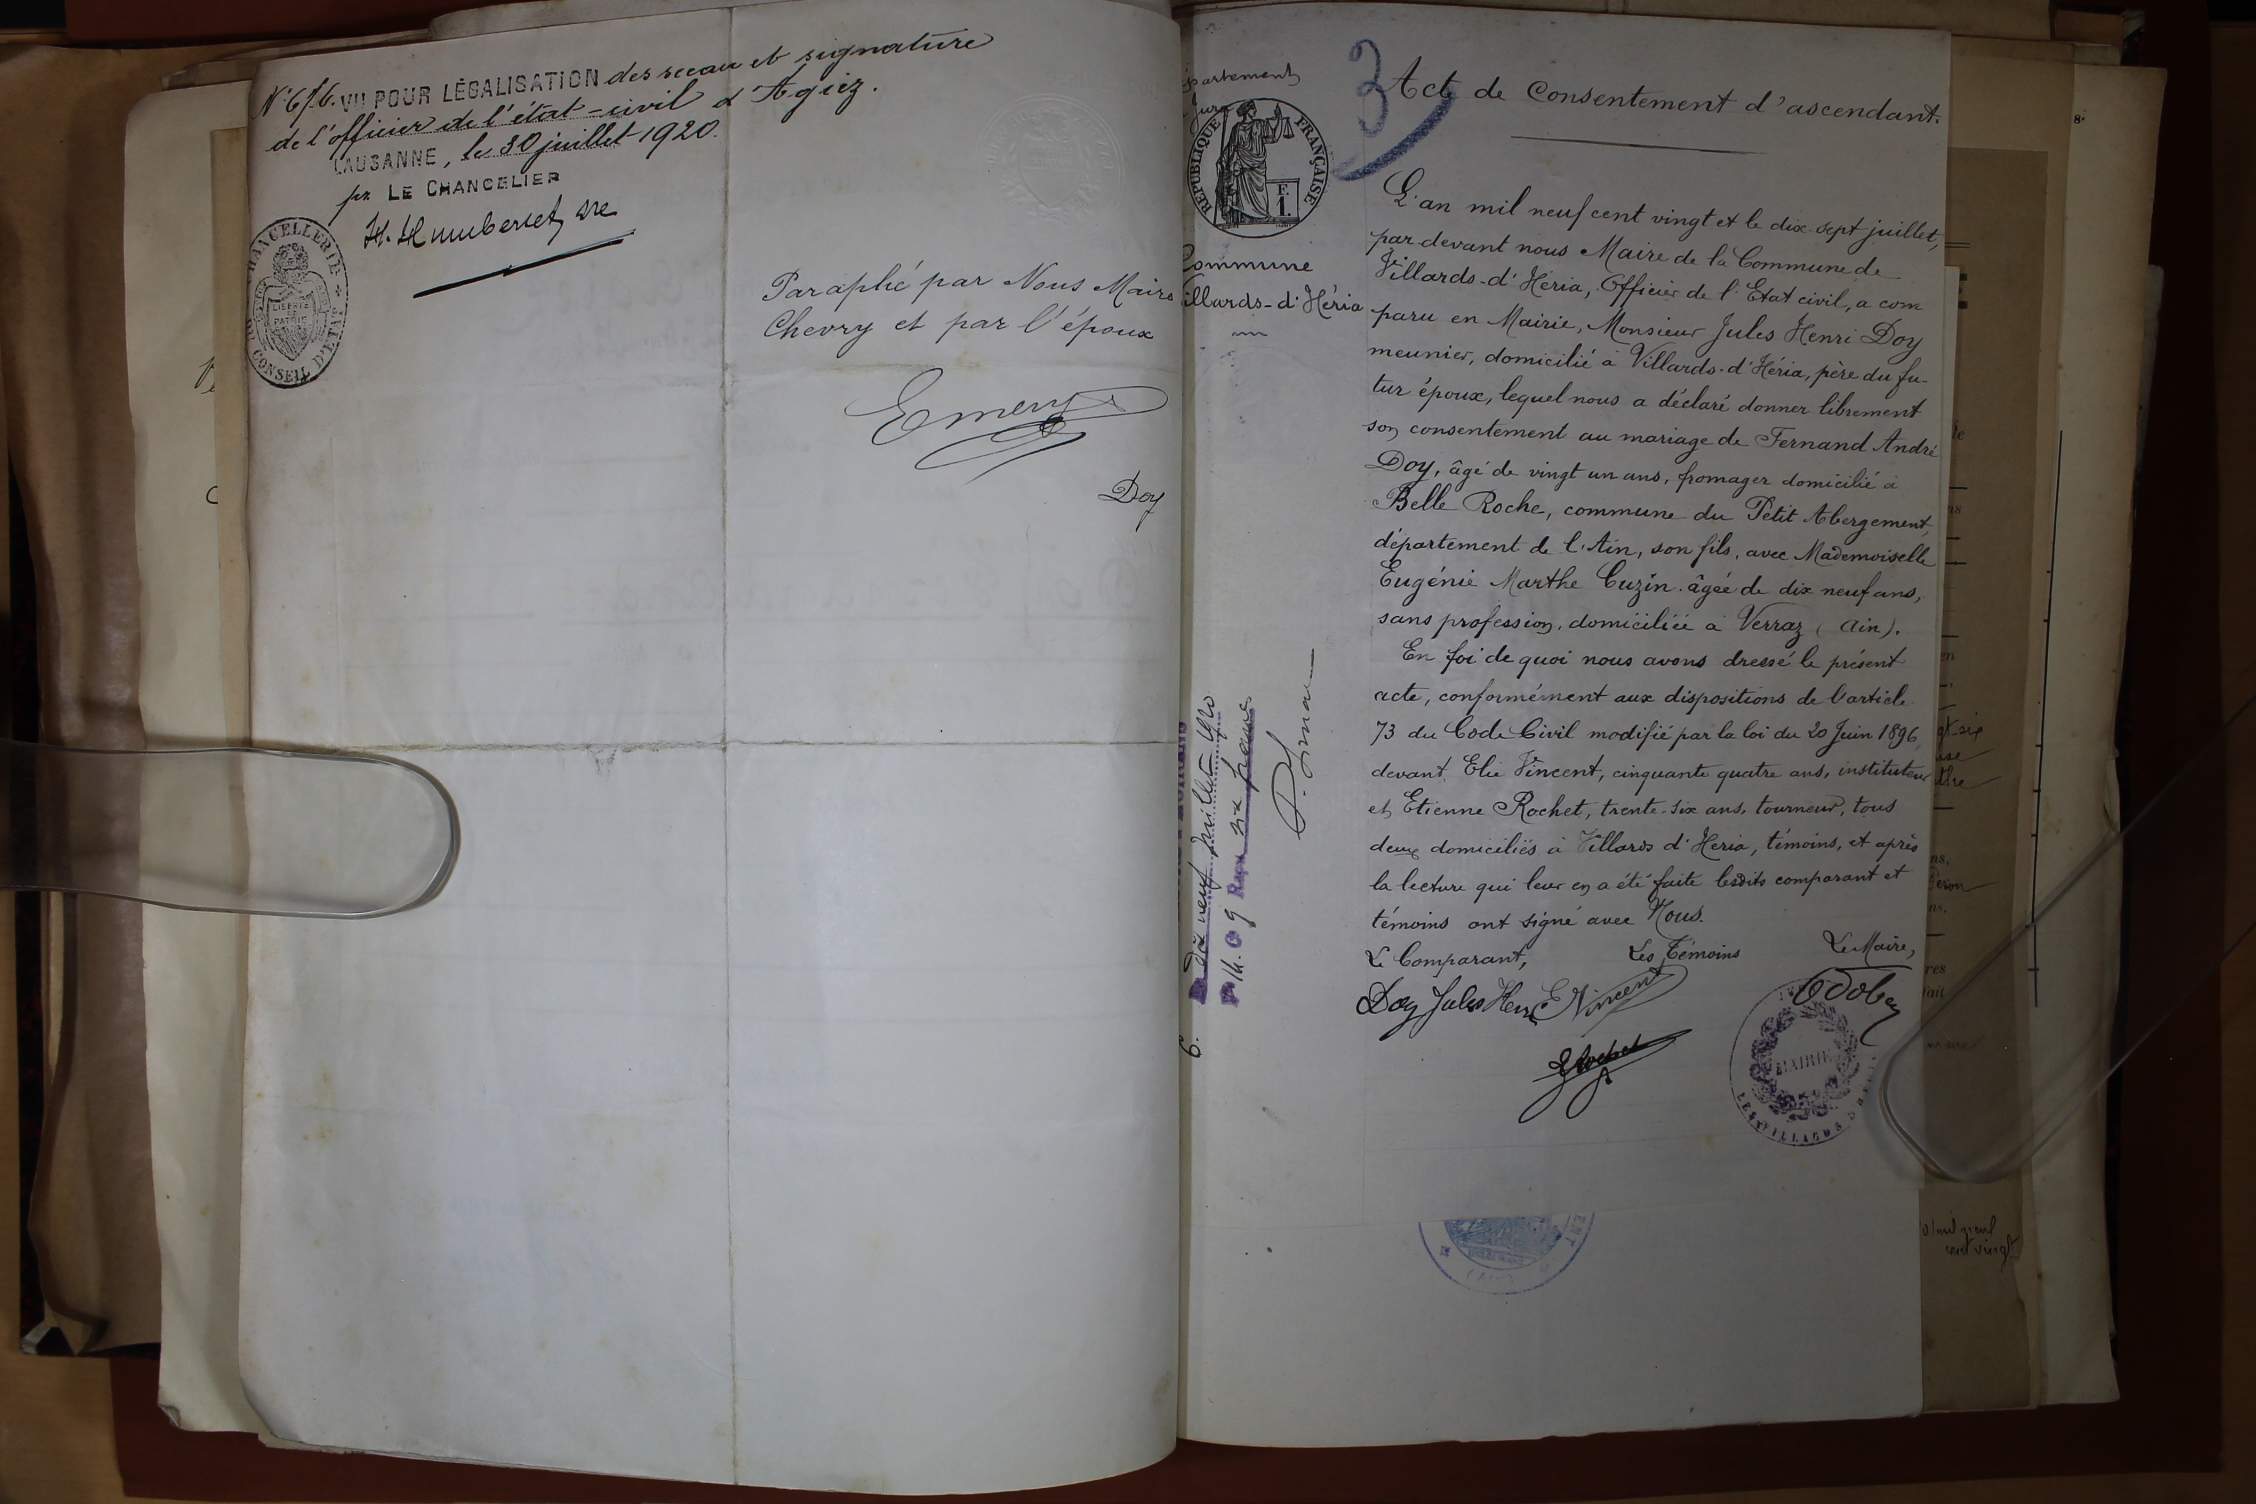 VU POUR LÉGALISATION des sceau et signature
de l'officier de l'état-civil d'Agiez.
LAUSANNE, le 30 juillet 1920.
pr. LE CHANCELIER
CHANCELLERIE
LIBERTÉ
ET
PATRIE
CONSEIL D'ETAT
Paraphé par Nous Maire
Chevry et par l'époux
Emery
Doy
3
RÉPUBLIQUE FRANÇAISE
F.
1.
Commune
illards-d'Héria
Acte de Consentement d'ascendant.
L'an mil neuf cent vingt et le dix-sept juillet,
par-devant nous Maire de la Commune de
Villards-d'Héria, Officier de l'Etat civil, a com
paru en Mairie, Monsieur Jules Henri Doy
meunier, domicilié à Villards-d'Héria, père du fu-
tur époux, lequel nous a déclaré donner librement
son consentement au mariage de Fernand André
Doy, âgé de vingt un ans, fromager domicilié à
Belle Roche, commune du Petit Abergement,
département de l'Ain, son fils, avec Mademoiselle
Eugénie Marthe Cuzin. âgée de dix neuf ans,
sans profession, domiciliée à Verraz (Ain).
En foi de quoi nous avons dressé le présent
acte, conformément aux dispositions de l'article
73 du Code Civil modifié par la loi du 20 Juin 1896,
devant Elie Vincent, cinquante quatre ans, instituteur
et Etienne Rochet, trente-six ans, tourneur, tous
deux domiciliés à Villards d'Héria, témoins, et après
la lecture qui leur en a été faite lesdits comparant et
témoins ont signé avec Nous.
Le Comparant, Les Témoins Le Maire,
Doy Jules Henri E Vincent
E Rochet
MAIRIE
dix neuf juillet